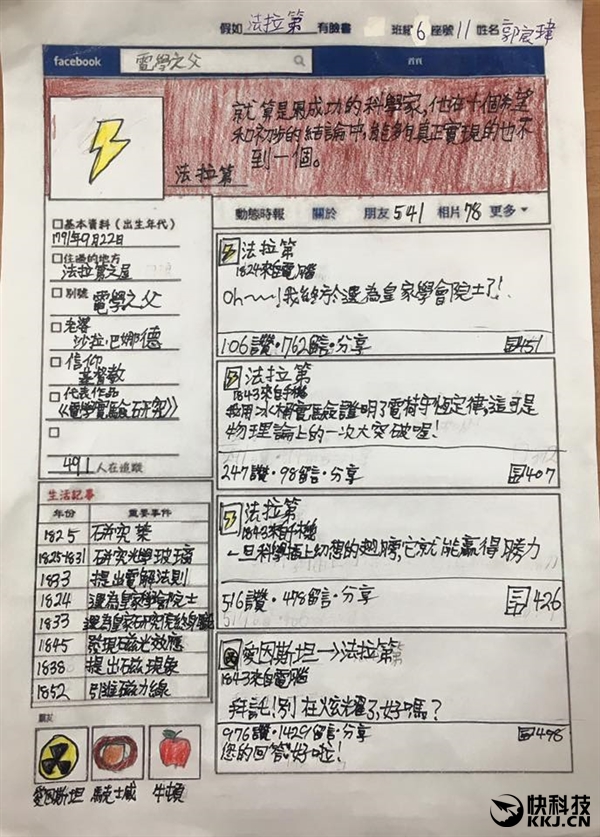 假如 法拉第 有臉書 班級6座號11姓名郭宸瑋
facebook 電學之父 首頁
就算是最成功的科學家,他在十個希望
和初步的結論中,能真正實現的也不
到一個。
法拉第
動態時報 關於 朋友541 相片78 更多
基本資料(出生年代)
1791年9月22日
住過的地方
法拉第之屋
別號
電學之父
老婆
沙拉·巴娜德
信仰
基督教
代表作品
《電學實驗研究》
491人在追蹤
生活記事
年份 重要事件
1825 研究苯
1825-1831 研究光學玻璃
1833 提出電解法則
1824 選為皇家學會院士
1833 選為皇家研究院終身職
1845 發現磁光效應
1838 提出磁現象
1852 引進磁力線
朋友
愛因斯坦 馬克士威 牛頓
法拉第
1824來自電腦
Oh~~~!我終於選為皇家學會院士了!
106讚·762留言·分享 451
法拉第
1843來自手機
我用冰桶實驗證明了電荷守恆定律,這可是
物理論上的一次大突破喔!
247讚·98留言·分享 407
法拉第
1843來自手機
一旦科學插上幻想的翅膀,它就能贏得勝力
516讚·478留言·分享 426
愛因斯坦→法拉第
1843來自電腦
拜託!別在炫耀了好嗎?
976讚·1429留言·分享 498
您的回答:好啦!
快科技
KKJ.CN